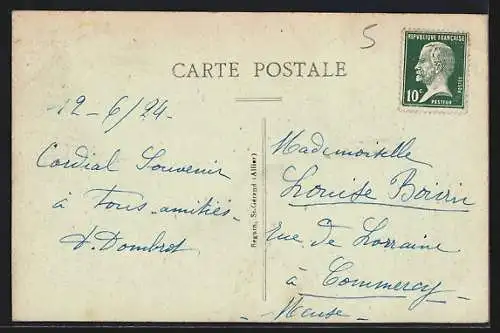 5
RÉPUBLIQUE FRANÇAISE
10c
POSTES
PASTEUR
CARTE POSTALE
12-6/24-
Cordial Souvenir
à Tous - amitiés -
Dombrot
Reguin, St-Gérand (Allier)
Mademoiselle
Louise Boivin
rue de Lorraine
à Commercy -
Meuse -